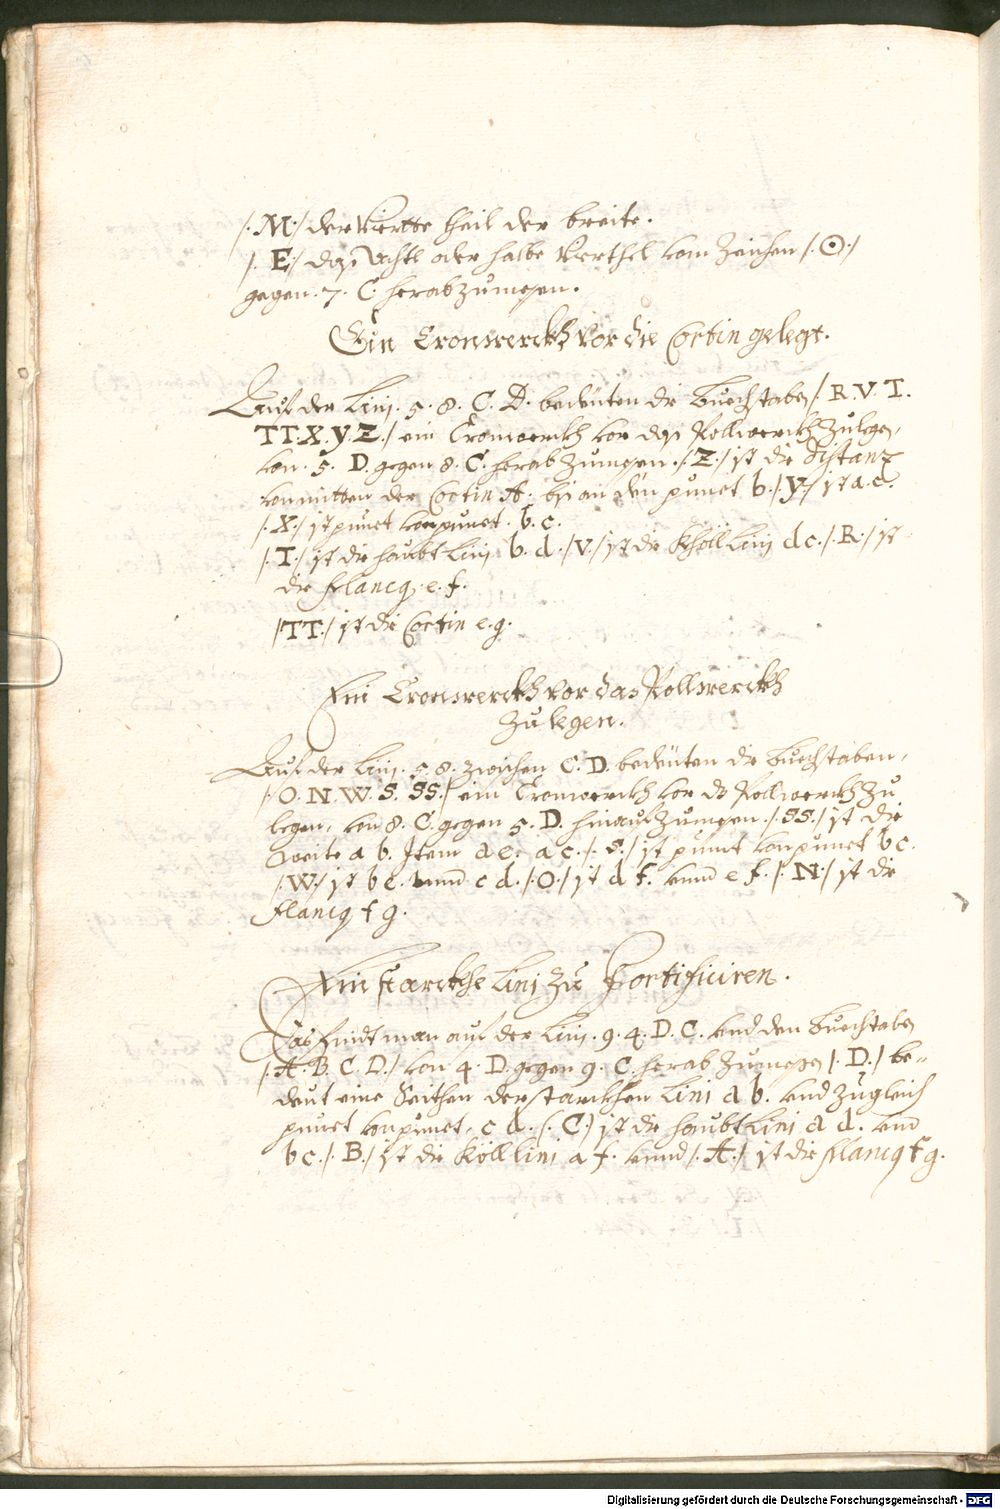 /. M ./ der Viertte theil der breite.
/. E ./ das Achtl oder halbe Vierthel vom Zeichen /. ⊙ ./
gegen .7. C. herabzumesen.
Ein Cronwerckh vor die Cortin gelegt.
Auf der Linj .5. 8. C. D. bedeuten die Buechstaben /. R. V. T.
TT. X. y. Z ./ ein Cronwerckh vor das Kollwerckh Zulegen,
von .5. D. gegen 8. C. herab Zumesen. /. Z ./ ist die distanz
von mitten der Cortin A. bis an den punct b. /. y ./ ist a. e.
/. X ./ ist punct von punct. b. c.
/. T ./ ist die haubt Linj b. d. /. V ./ ist die Khöll Linj d c. /. R ./ ist
die Flancq. e. f.
/. TT ./ ist die Cortin e. g.
Ein Cronwerckh vor das Kollwerckh
Zu legen.
Auf der Linj .5. 8. zwischen C. D. bedeuten die Buechstaben,
/. O. N. W. S. SS ./ ein Cronwerckh vor das Kollwerckh Zu
legen, von 8. C. gegen 5. D. hinauf Zumesen. /. SS ./ ist die
weite a b. Item a e. a c. /. S ./ ist punct von punct b c.
/. W ./ ist b e. vnnd c d. /. O ./ ist d f. vnnd e f. /. N ./ ist die
Flancq f g.
Ein starckhe Linj Zu Fortificiren.
Das findt man auf der Linj .9. 4. D. C. vnd den Buechstaben
/. A. B. C. D ./ von 4. D. gegen 9. C. herab Zumesen /. D ./ be=
deut eine Seithen der starckhen Linj a b. vnd Zugleich
punct von punct, c d. /. C ./ ist die haubt Linj a d. vnd
b c. /. B ./ ist die Köll linj a f. vnnd /. A ./ ist die Flancq f g.
Digitalisierung gefördert durch die Deutsche Forschungsgemeinschaft - DFG